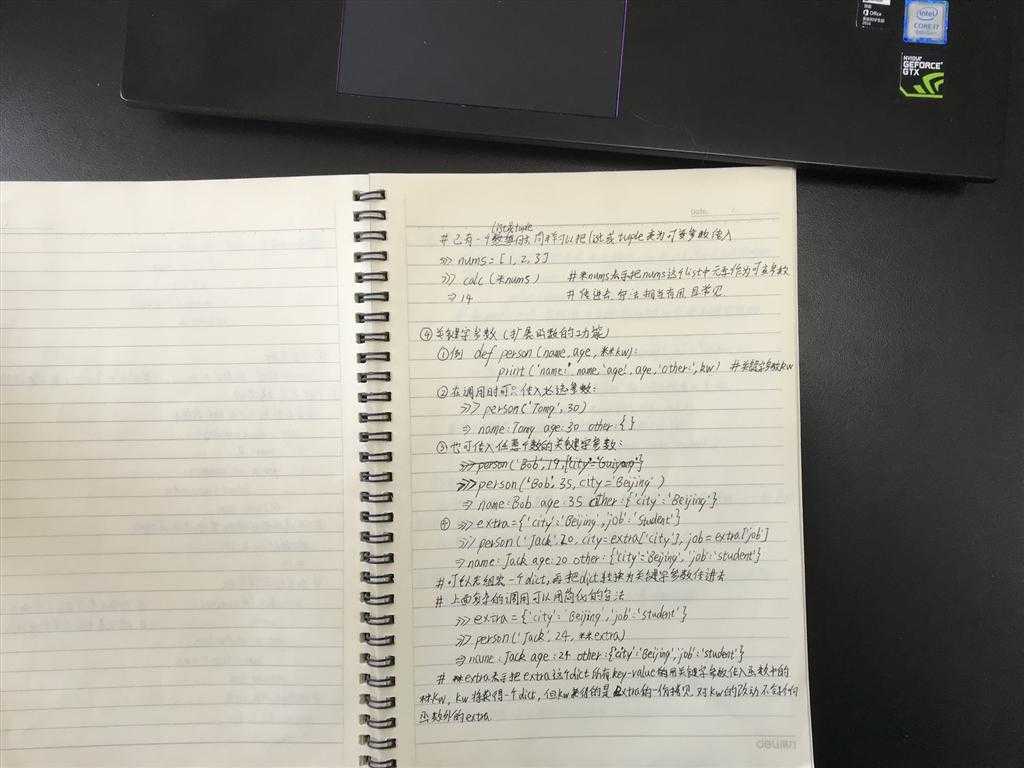 Office
intel
CORE i7
NVIDIA
GEFORCE
GTX
Date.
list或tuple
# 已有一个 同样可以把list或tuple 为可变参数传入
>>> nums = [1, 2, 3]
>>> calc (*nums) # *nums表示把nums这个list中元素作为可变参数
⇒ 14 # 传进去, 写法相当有用且常见
④ 关键字参数 (扩展函数的功能)
①例 def person (name, age, **kw):
print ('name:' name, 'age', age, 'other:', kw) # 关键字参数kw
②在调用时可只传入必选参数:
>>> person('Tomy', 30)
⇒ name: Tomy age: 30 other: { }
③也可传入任意个数的关键字参数:
>>> person('Bob', 19, {'city'='Guiyang'}
>>> person('Bob', 35, city='Beijing' )
⇒ name: Bob age: 35 other: {'city': 'Beijing'}
④ >>> extra = {'city': 'Beijing', 'job': 'student'}
>>> person('Jack', 20, city=extra['city'], job=extra['job']
⇒ name: Jack age: 20 other: {'city': 'Beijing', 'job': 'student'}
# 可以先组装一个dict, 再把dict转换为关键字参数传进去
# 上面复杂的调用可以用简化的写法
>>> extra = {'city': 'Beijing', 'job': 'student'}
>>> person('Jack', 24, **extra)
⇒ name: Jack age: 24 other: {'city': 'Beijing', 'job': 'student'}
# **extra表示把extra这个dict所有key-value 用关键字参数传入函数中的
**kw, kw将获得一个dict, 但kw获得的是extra的一份拷贝, 对kw的改动不会影响
函数外的extra
deli得力